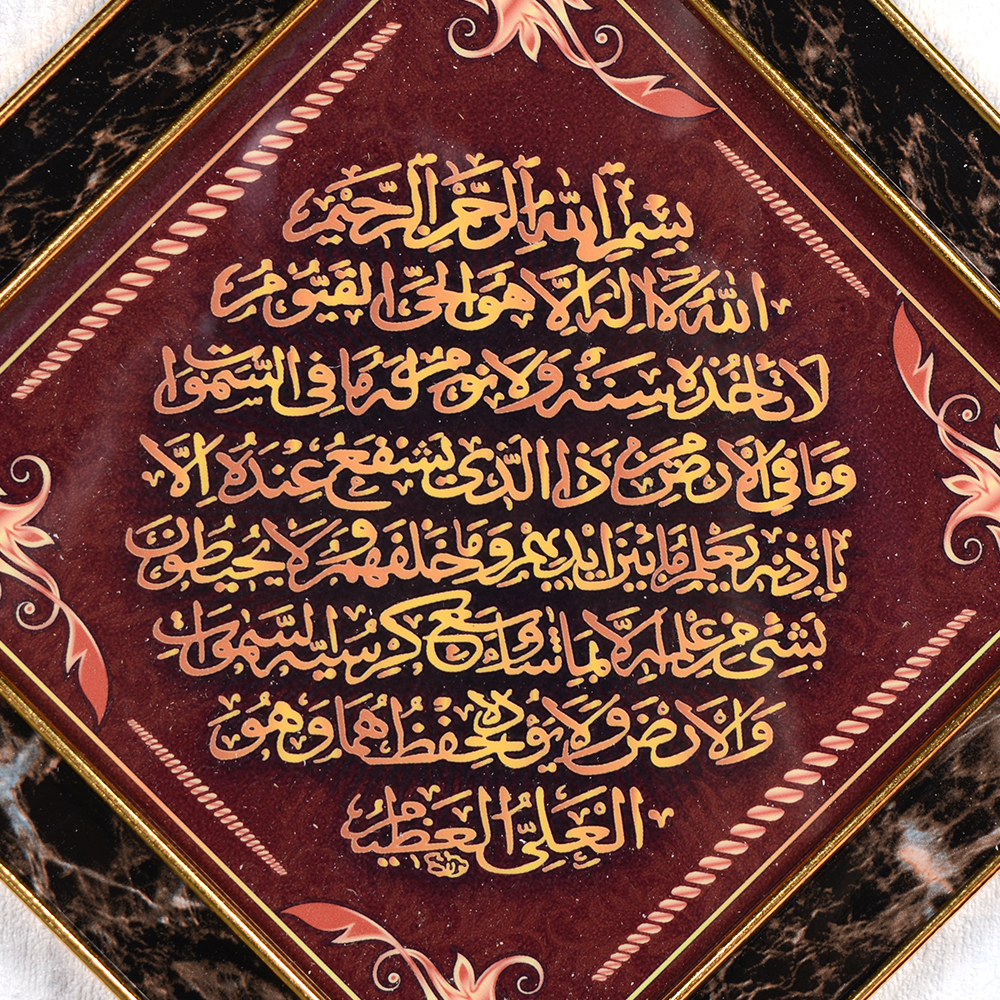 بِسْمِ اللهِ الرَّحْمٰنِ الرَّحِيْمِ
اَللهُ لَا اِلٰهَ اِلَّا هُوَ الْحَيُّ الْقَيُّوْمُ
لَا تَاْخُذُهُ سِنَةٌ وَلَا نَوْمٌ لَهُ مَا فِي السَّمٰوَاتِ
وَمَا فِي الْاَرْضِ مَنْ ذَا الَّذِي يَشْفَعُ عِنْدَهُ اِلَّا
بِاِذْنِهِ يَعْلَمُ مَا بَيْنَ اَيْدِيهِمْ وَمَا خَلْفَهُمْ وَلَا يُحِيطُونَ
بِشَيْءٍ مِنْ عِلْمِهِ اِلَّا بِمَا شَاءَ وَسِعَ كُرْسِيُّهُ السَّمٰوَاتِ
وَالْاَرْضَ وَلَا يَؤُدُهُ حِفْظُهُمَا وَهُوَ
الْعَلِيُّ الْعَظِيْمُ